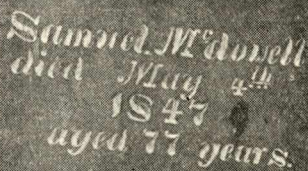 Samuel McDowell
died May 4th
1847
aged 77 years.